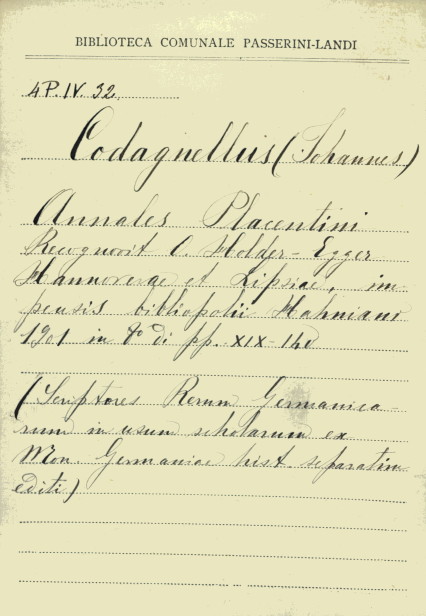 BIBLIOTECA COMUNALE PASSERINI-LANDI
4P.IV.32.
Codagnellus (Johannes)
Annales Placentini
Recognovit O. Holder-Egger
Hannoverae et Lipsiae, im
pensis bibliopolii Hahniani
1901 in 8° di pp. XIX-140
(Scriptores Rerum Germanica-
rum in usum scholarum ex
Mon. Germaniae hist. separatim
editi)